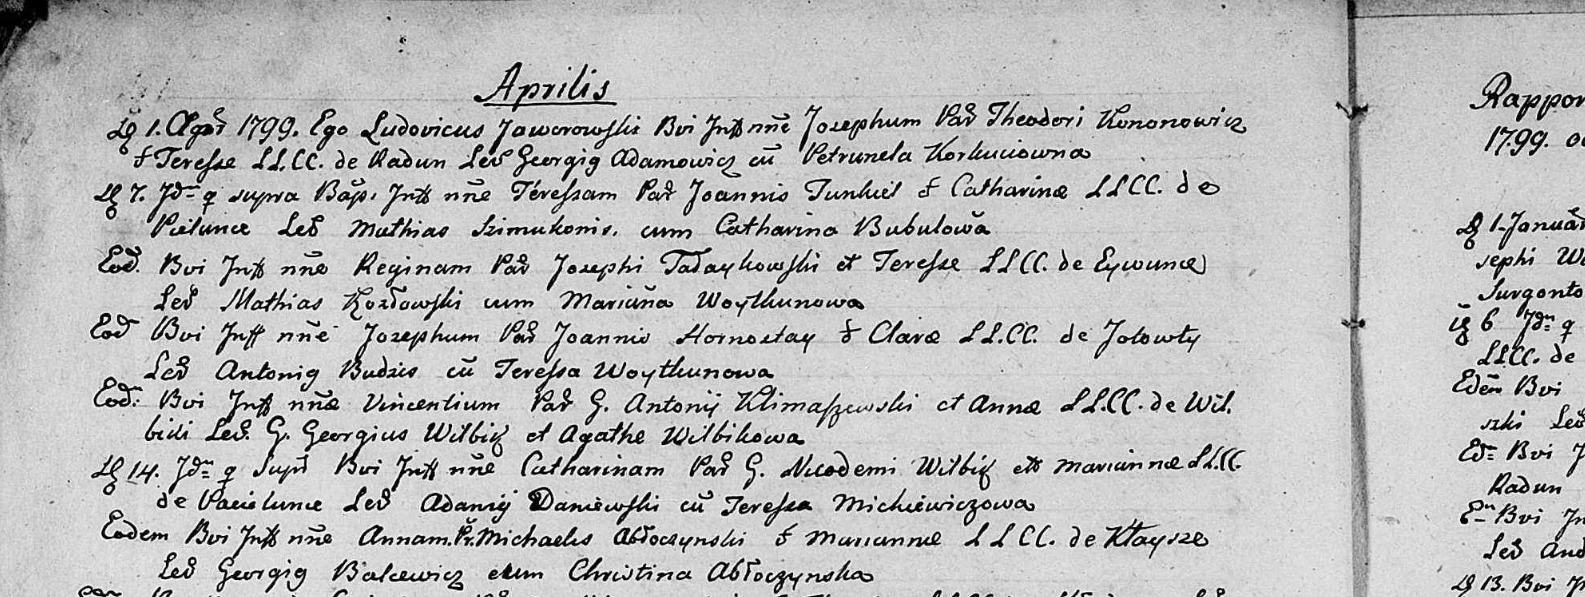 Aprilis
1. 1799. Ego Ludovicus Jaworowski Bvi Inff nne Josephum Par Theodori Kononowicz
& Teresse LL.CC. de Radun Lev Georgig Adamowicz cu Petrunela Korkuciowna
7. Jdn q supra Bap. Inff nne Teressam Par Joannis Tunkiel & Catharinæ LLCC. de
Pielunce Lev Mathias Szimukonis. cum Catharina Bubulowa
Eod. Bvi Inff nne Reginam Par Josephi Tadaykowski et Teresse LLCC. de Eywunce
Lev Mathias Kozłowski cum Mariana Woytkunowa
Eod Bvi Inff nne Josephum Par Joannis Hornostay & Claræ LL.CC. de Jotowty
Lev Antonig Budzis cu Teressa Woytkunowa
Eodm: Bvi Inff nnæ Vincentium Par G. Antonij Klimaszewski et Annæ LL.CC. de Wil.
bidi Lev. G. Georgius Wilbik et Agathe Wilbikowa
14. Jdn q Supr Bvi Inff nne Catharinam Par G. Nicodemi Wilbik et Mariannæ LL.CC.
de Pacielunce Lev Adamij Daniewski cu Teressa Mickiewiczowa
Eodem Bvi Inff nne Annam. Pr. Michaelis Abłoczynski & Mariannæ LLCC. de Kłaysze
Lev Georgig Balcewicz cum Christina Abłoczynska
Rappor
1799.
1. Januar
sephi
Surgonto
6 Jdn q
LLCC. de
Edem Bvi
szki Lev
Ed= Bvi
Radun
Bvi In
Lev And
13. Bvi